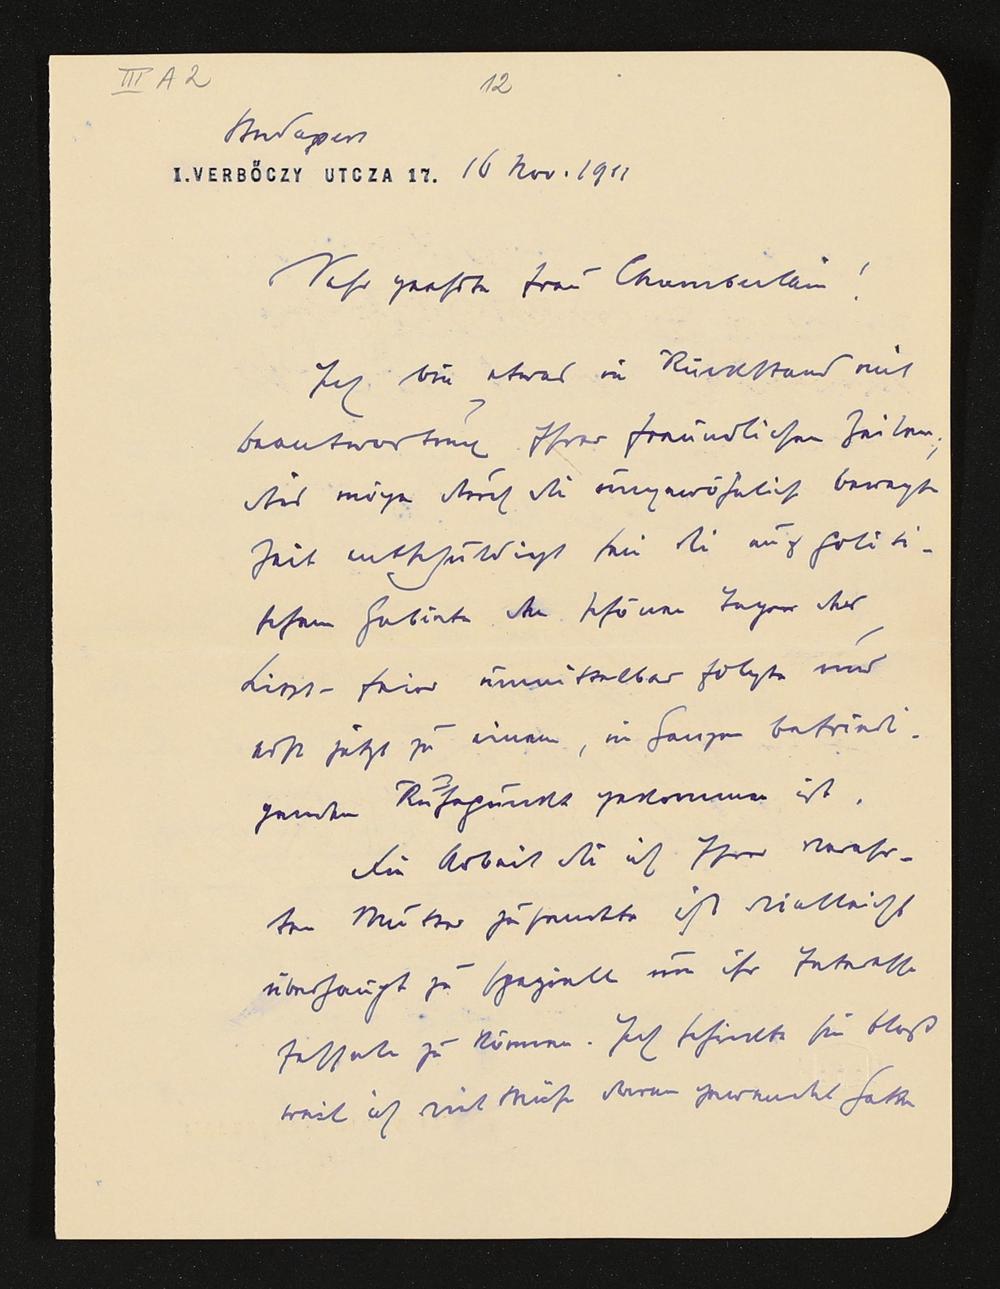 III A 2
12
Budapest
I. VERBŐCZY UTCZA 17. 16 Nov. 1911
Sehr geehrte Frau Chamberlain!
Ich bin etwas in Rückstand mit
beantwortung Ihrer freundlichen Zeilen;
das möge durch die ungewöhnlich bewegte
Zeit entschuldigt sein die auf politi-
schem Gebiete den schönen Tagen der
Liszt-feier unmittelbar folgte und
erst jetzt zu einem, im Ganzen befriedi-
genden Ruhepunkt gekommen ist.
Die Arbeit die ich Ihrer verehr-
ten Mutter zusandte ist vielleicht
überhaupt zu speziell um ihr Interesse
fesseln zu können. Ich schickte sie bloß
weil ich viel Mühe daran gewendet hatte